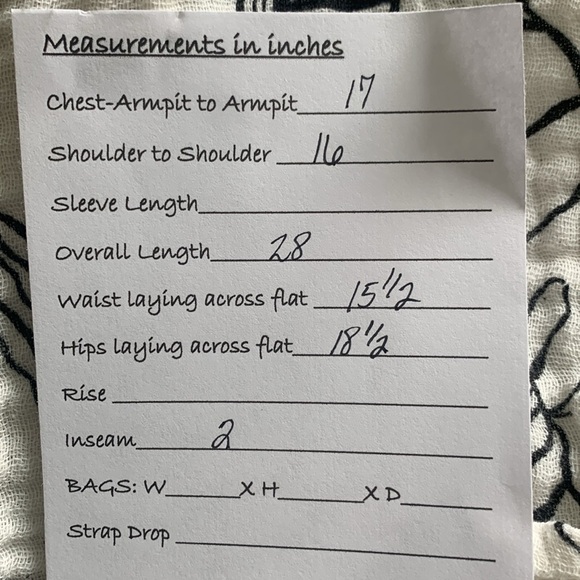 Measurements in inches
Chest-Armpit to Armpit 17
Shoulder to Shoulder 16
Sleeve Length
Overall Length 28
Waist laying across flat 15 1/2
Hips laying across flat 18 1/2
Rise
Inseam 2
BAGS: W X H X D
Strap Drop